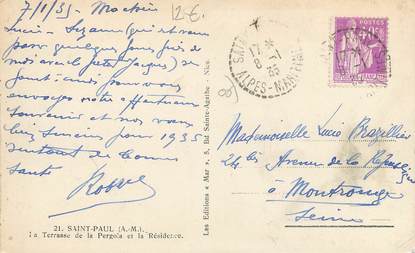 7/1/35 - Ma chère
Lucie - Suzanne (qui est venue
passer quelques jours près de
moi avec le petit Jacques) se
joint ainsi pour vous
envoyer notre affectueux
souvenir et nos vœux
bien sincères pour 1935
surtout de bonne
santé
12 €
21. SAINT-PAUL (A.-M.).
La Terrasse de la Pergola et la Résidence.
Les Editions « Mar », 5, Bd Sainte-Agathe - Nice.
17 *
8 -1
35
ALPES-MARITIMES
POSTES
Mademoiselle Lucie Brazellier
24 bis Avenue de la République
à Montrouge
Seine